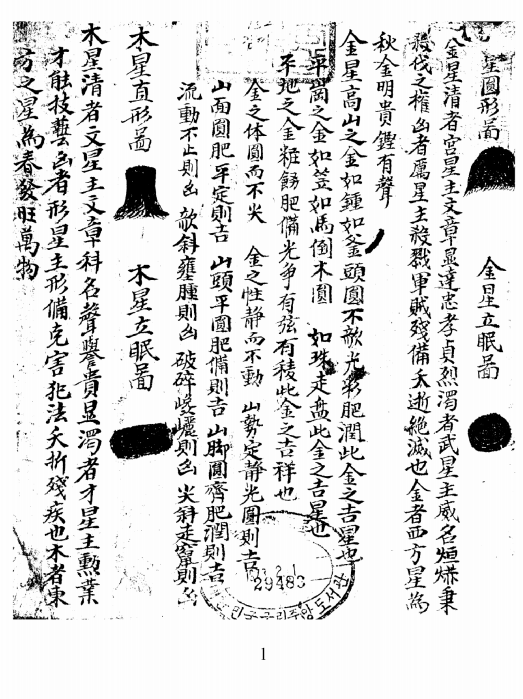 星圓形啚
金星立眠啚
金星清者官星主文章顯達忠孝貞烈濁者武星主威名烜爀秉
殺伐之權凶者厲星主殺戮軍賊殘備夭逝絶滅也金者西方星爲
秋金明貴鏗有聲
金星高山之金如鍾如釜頭圓不欹光彩肥潤此金之吉星也
平崗之金如笠如馬倒木圓 如珠走盤此金之吉星也
平地之金粧餳肥備光爭有弦有稜此金之吉祥也
金之体圓而不尖 金之性静而不動 山勢定静光圓則吉
山面圓肥平定則吉 山頭平圓肥備則吉 山脚圓齊肥潤則吉
流動不止則凶 欹斜癰腫則凶 破碎崚巘則凶 尖斜走竄則凶
木星直形啚
木星立眠啚
木星清者文星主文章科名聲譽貴显濁者才星主勲業
才能技藝凶者形星主形備克害犯法夭折殘疾也木者東
方之星爲春發旺萬物
29483
1